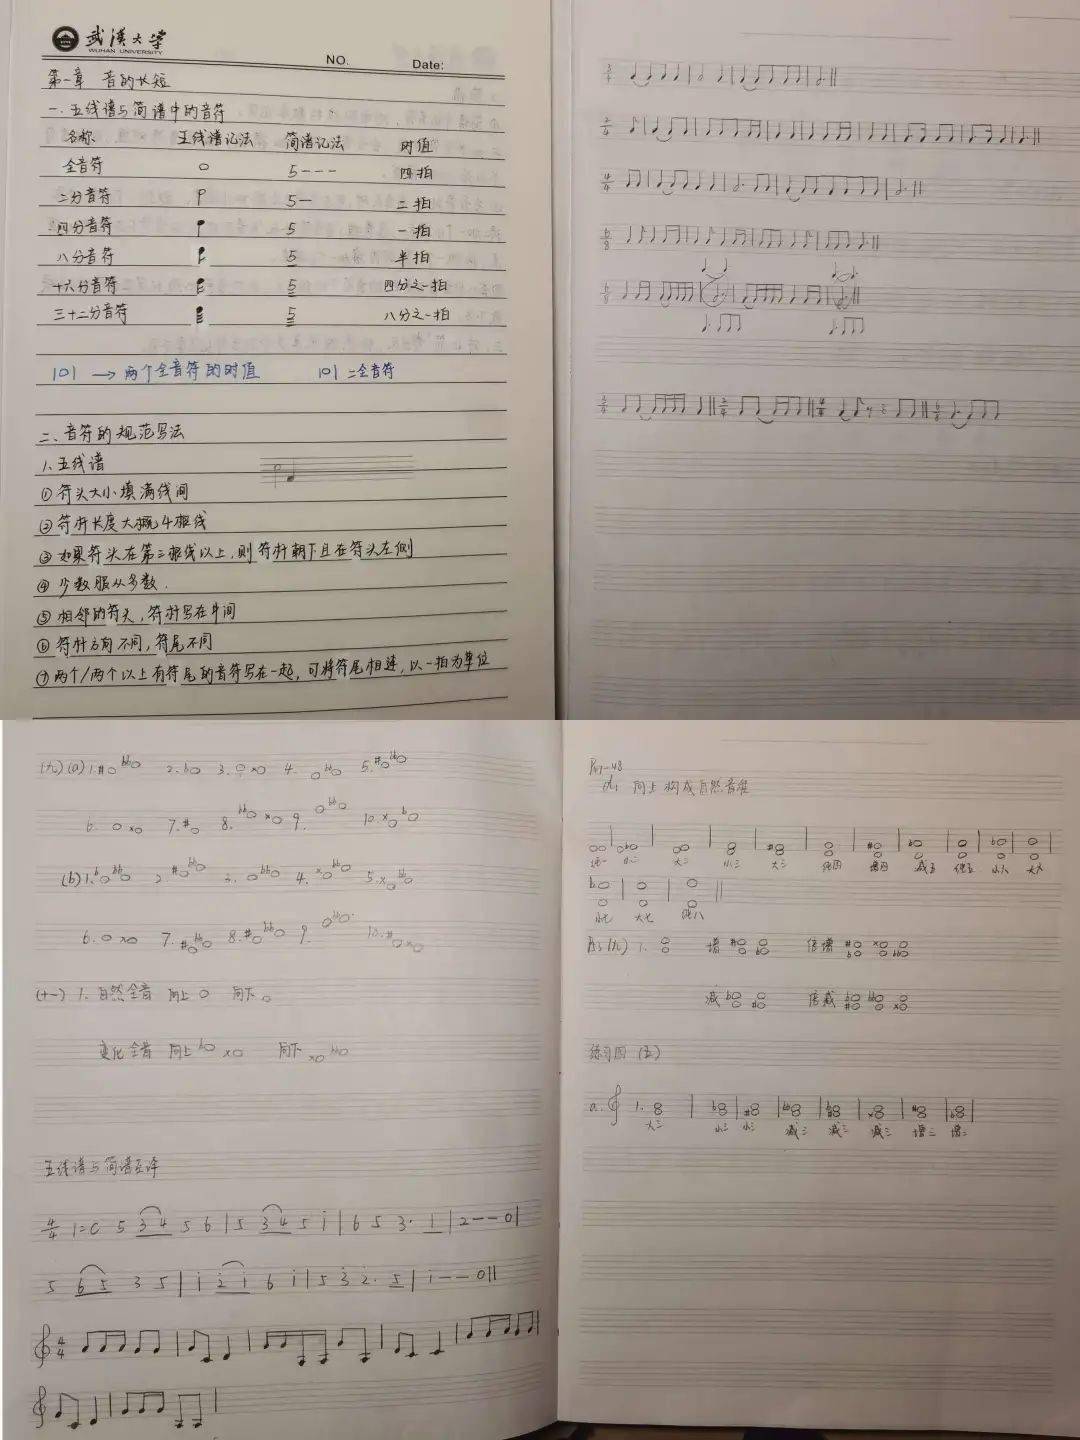 武汉大学
WUHAN UNIVERSITY
NO. Date:
第一章 音的长短
一、五线谱与简谱中的音符
名称 五线谱记法 简谱记法 时值
全音符 5--- 四拍
二分音符 5- 二拍
四分音符 5 一拍
八分音符 5 半拍
十六分音符 5 四分之一拍
三十二分音符 5 八分之一拍
|0| → 两个全音符的时值 |0| 二全音符
二、音符的规范写法
1、五线谱
① 符头大小填满线间
② 符杆长度大概4根线
③ 如果符头在第三根线以上,则符杆朝下且在符头左侧
④ 少数服从多数.
⑤ 相邻的符头,符杆写在中间
⑥ 符杆方向不同,符尾不同
⑦ 两个/两个以上有符尾的音符写在一起,可将符尾相连,以一拍为单位
(九) (a) 1. 2. 3. 4. 5.
6. 7. 8. 9. 10.
(b) 1. 2. 3. 4. 5.
6. 7. 8. 9. 10.
(十一) 1. 自然全音 向上 向下
变化全音 向上 向下
五线谱与简谱互译
4/4 1=C 5 3 4 5 6 | 5 3 4 5 i | 6 5 3· 1 | 2--0 |
5 6 5 3 5 | i 2 i 6 i | 5 3 2· 5 | i--0 ||
4/4
向上构成自然音程
纯一 小二 大二 小三 大三 纯四 增四 减五 纯五 小六 大六
小七 大七 纯八
(九) 1. 增 倍增
减 倍减
练习四 (五)
a. 1.
大三 小三 小三 减三 减三 减三 增三 增三